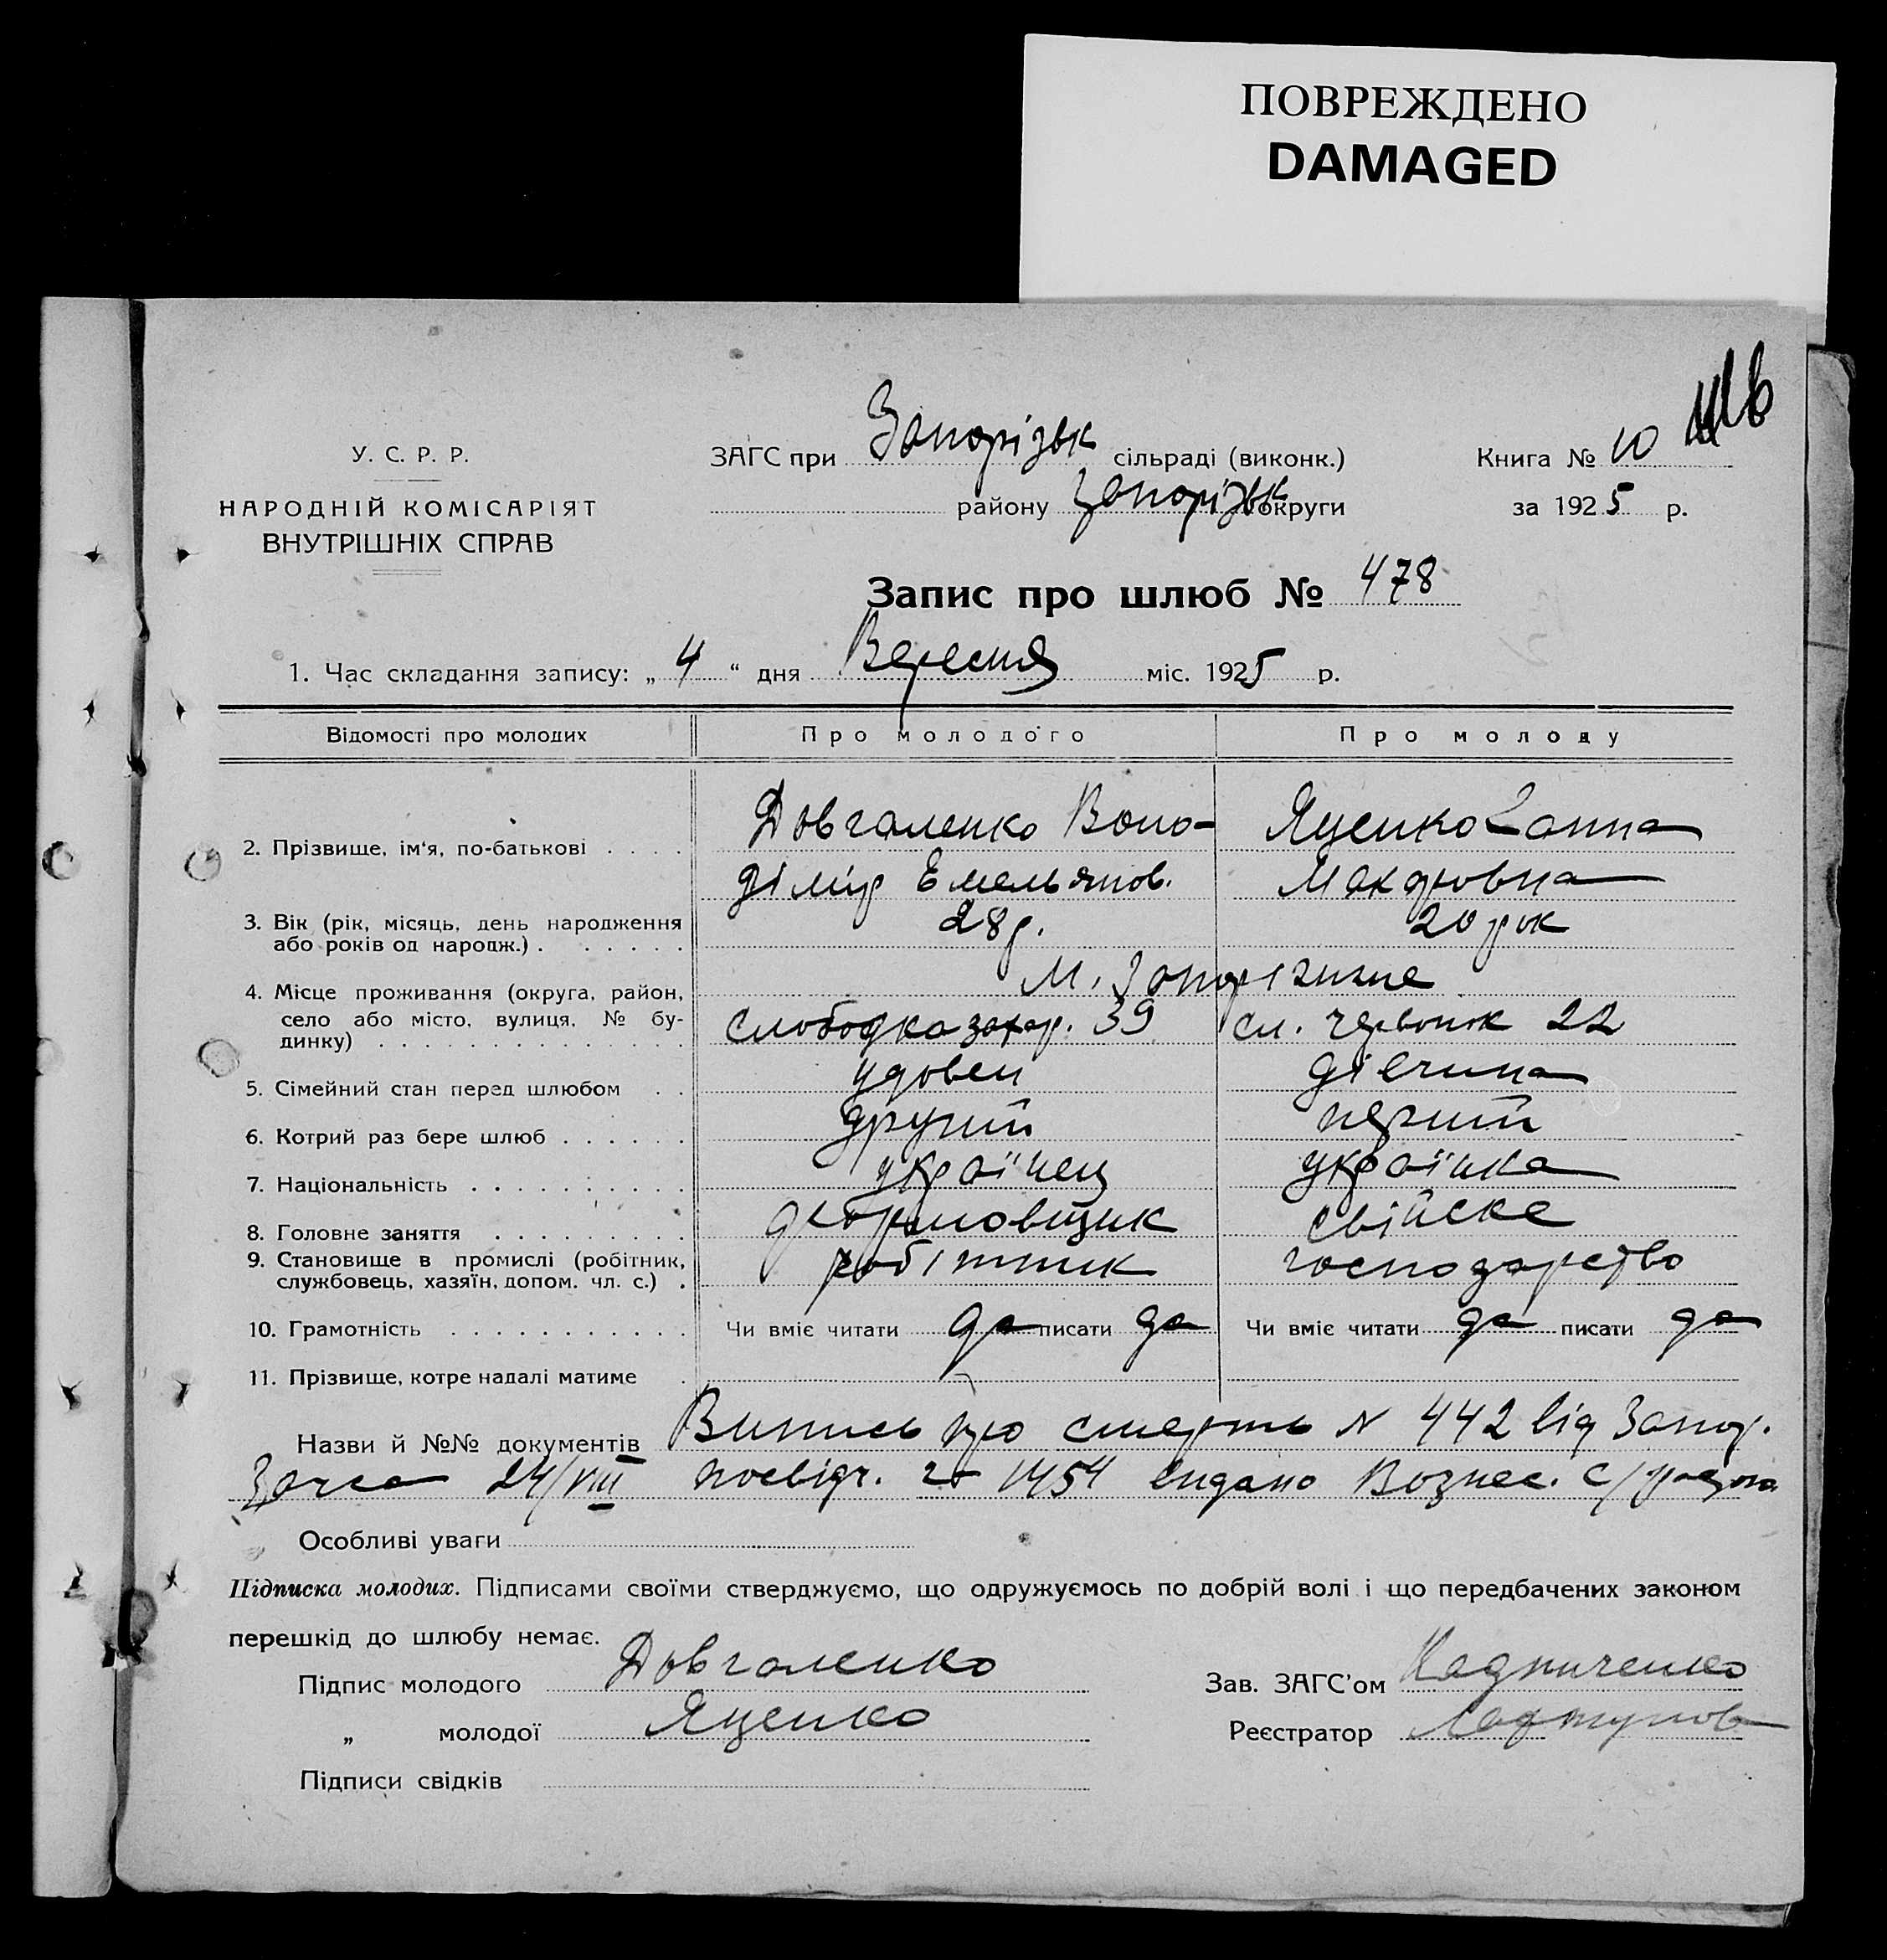 ПОВРЕЖДЕНО
DAMAGED
У. С. Р. Р.
НАРОДНІЙ КОМІСАРІЯТ
ВНУТРІШНІХ СПРАВ
ЗАГС при Запорізьк сільраді (виконк.)
району Запорізьк округи
Книга № 10
за 1925 р.
Запис про шлюб № 478
1. Час складання запису: „ 4 “ дня Вересня міс. 1925 р.
Відомості про молодих Про молодого Про молоду
2. Прізвище, ім'я, по-батькові . . . . Довгаленко Воло- Яценко Ганна
дімір Емельянов.
3. Вік (рік, місяць, день народження 28 р. 20 рок
або років од нарощ.) . . . . . .
М. Запоріжже
4. Місце проживання (округа, район,
село або місто, вулиця, № бу- слободка 39 сл. червонок 22
динку) . . . . . . . . . . . . . . .
5. Сімейний стан перед шлюбом . . удовец дівчина
6. Котрий раз бере шлюб . . . . . . другий перший
7. Національність . . . . . . . . . . українец українка
8. Головне заняття . . . . . . . . . формовщик свійске
9. Становище в промислі (робітник, робітник господарство
службовець, хазяїн, допом. чл. с.) .
10. Грамотність . . . . . . . . . . . Чи вміє читати да писати да Чи вміє читати да писати да
11. Прізвище, котре надалі матиме .
Назви й №№ документів Випись про смерть N 442 від Запор.
Загса 24/VIII посвідч. 1454 видано Вознес. с/
Особливі уваги
Підписка молодих. Підписами своїми стверджуємо, що одружуємось по добрій волі і що передбачених законом
перешкід до шлюбу немає.
Підпис молодого Довгаленко
Зав. ЗАГС'ом
„ молодої Яценко
Реєстратор
Підписи свідків